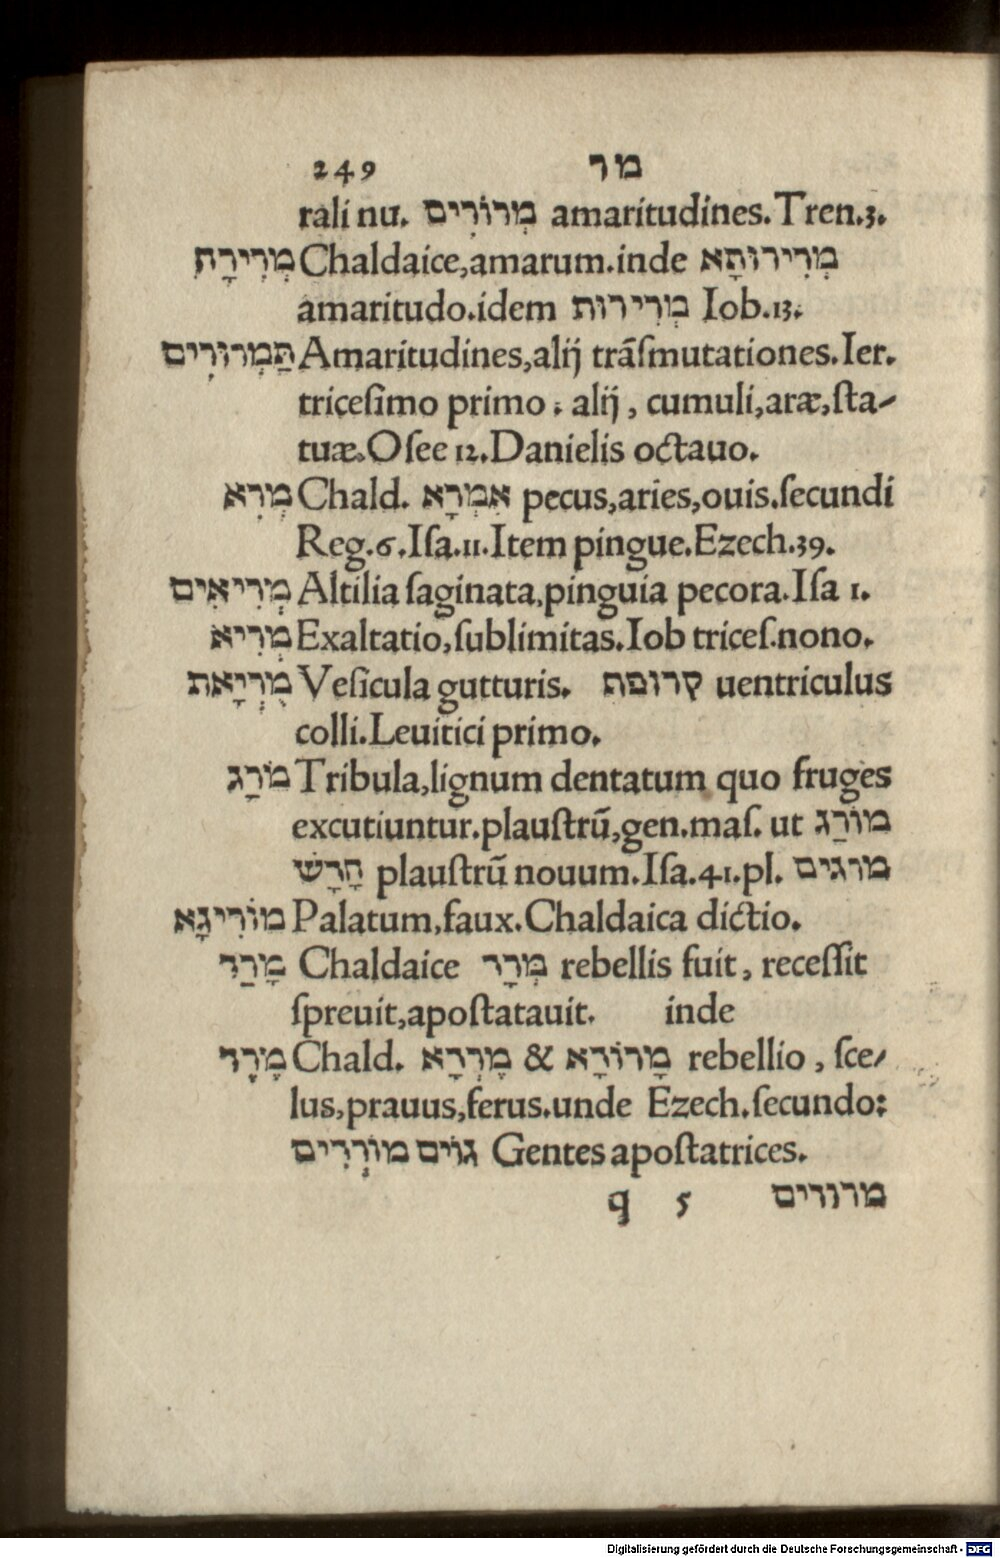 249 מר
rali nu. מְרוֹרִים amaritudines. Tren.3.
מְרִירָה Chaldaice,amarum.inde מְרִירוּתָא
amaritudo.idem מְרִירוּת Iob.13.
תַּמְרוּרִים Amaritudines,alij trãſmutationes.Ier.
triceſimo primo ; alij , cumuli,aræ,ſta-
tuæ.Oſee 12.Danielis octauo.
מְרִא Chald. אִמְרָא pecus,aries,ouis.ſecundi
Reg.6.Iſa.11.Item pingue.Ezech.39.
מְרִיאִים Altilia ſaginata,pinguia pecora.Iſa 1.
מְרִיא Exaltatio,ſublimitas.Iob triceſ.nono.
מֻרְיָאת Veſicula gutturis. קרופת uentriculus
colli.Leuitici primo.
מֹרָג Tribula,lignum dentatum quo fruges
excutiuntur.plauſtrũ,gen.maſ. ut מוֹרַג
חָרָשׁי plauſtrũ nouum.Iſa.41.pl. מורגים
מוֹרִיגָא Palatum,faux.Chaldaica dictio.
מָרַד Chaldaice מְרָר rebellis fuit, receſſit
ſpreuit,apoſtatauit. inde
מֶרֶד Chald. מֶרְדָא & מָרוֹדָא rebellio , ſce-
lus,prauus,ferus.unde Ezech.ſecundo:
גוֹים מוֹרְדִים Gentes apoſtatrices.
q 5 מרודים
Digitalisierung gefördert durch die Deutsche Forschungsgemeinschaft - DFG